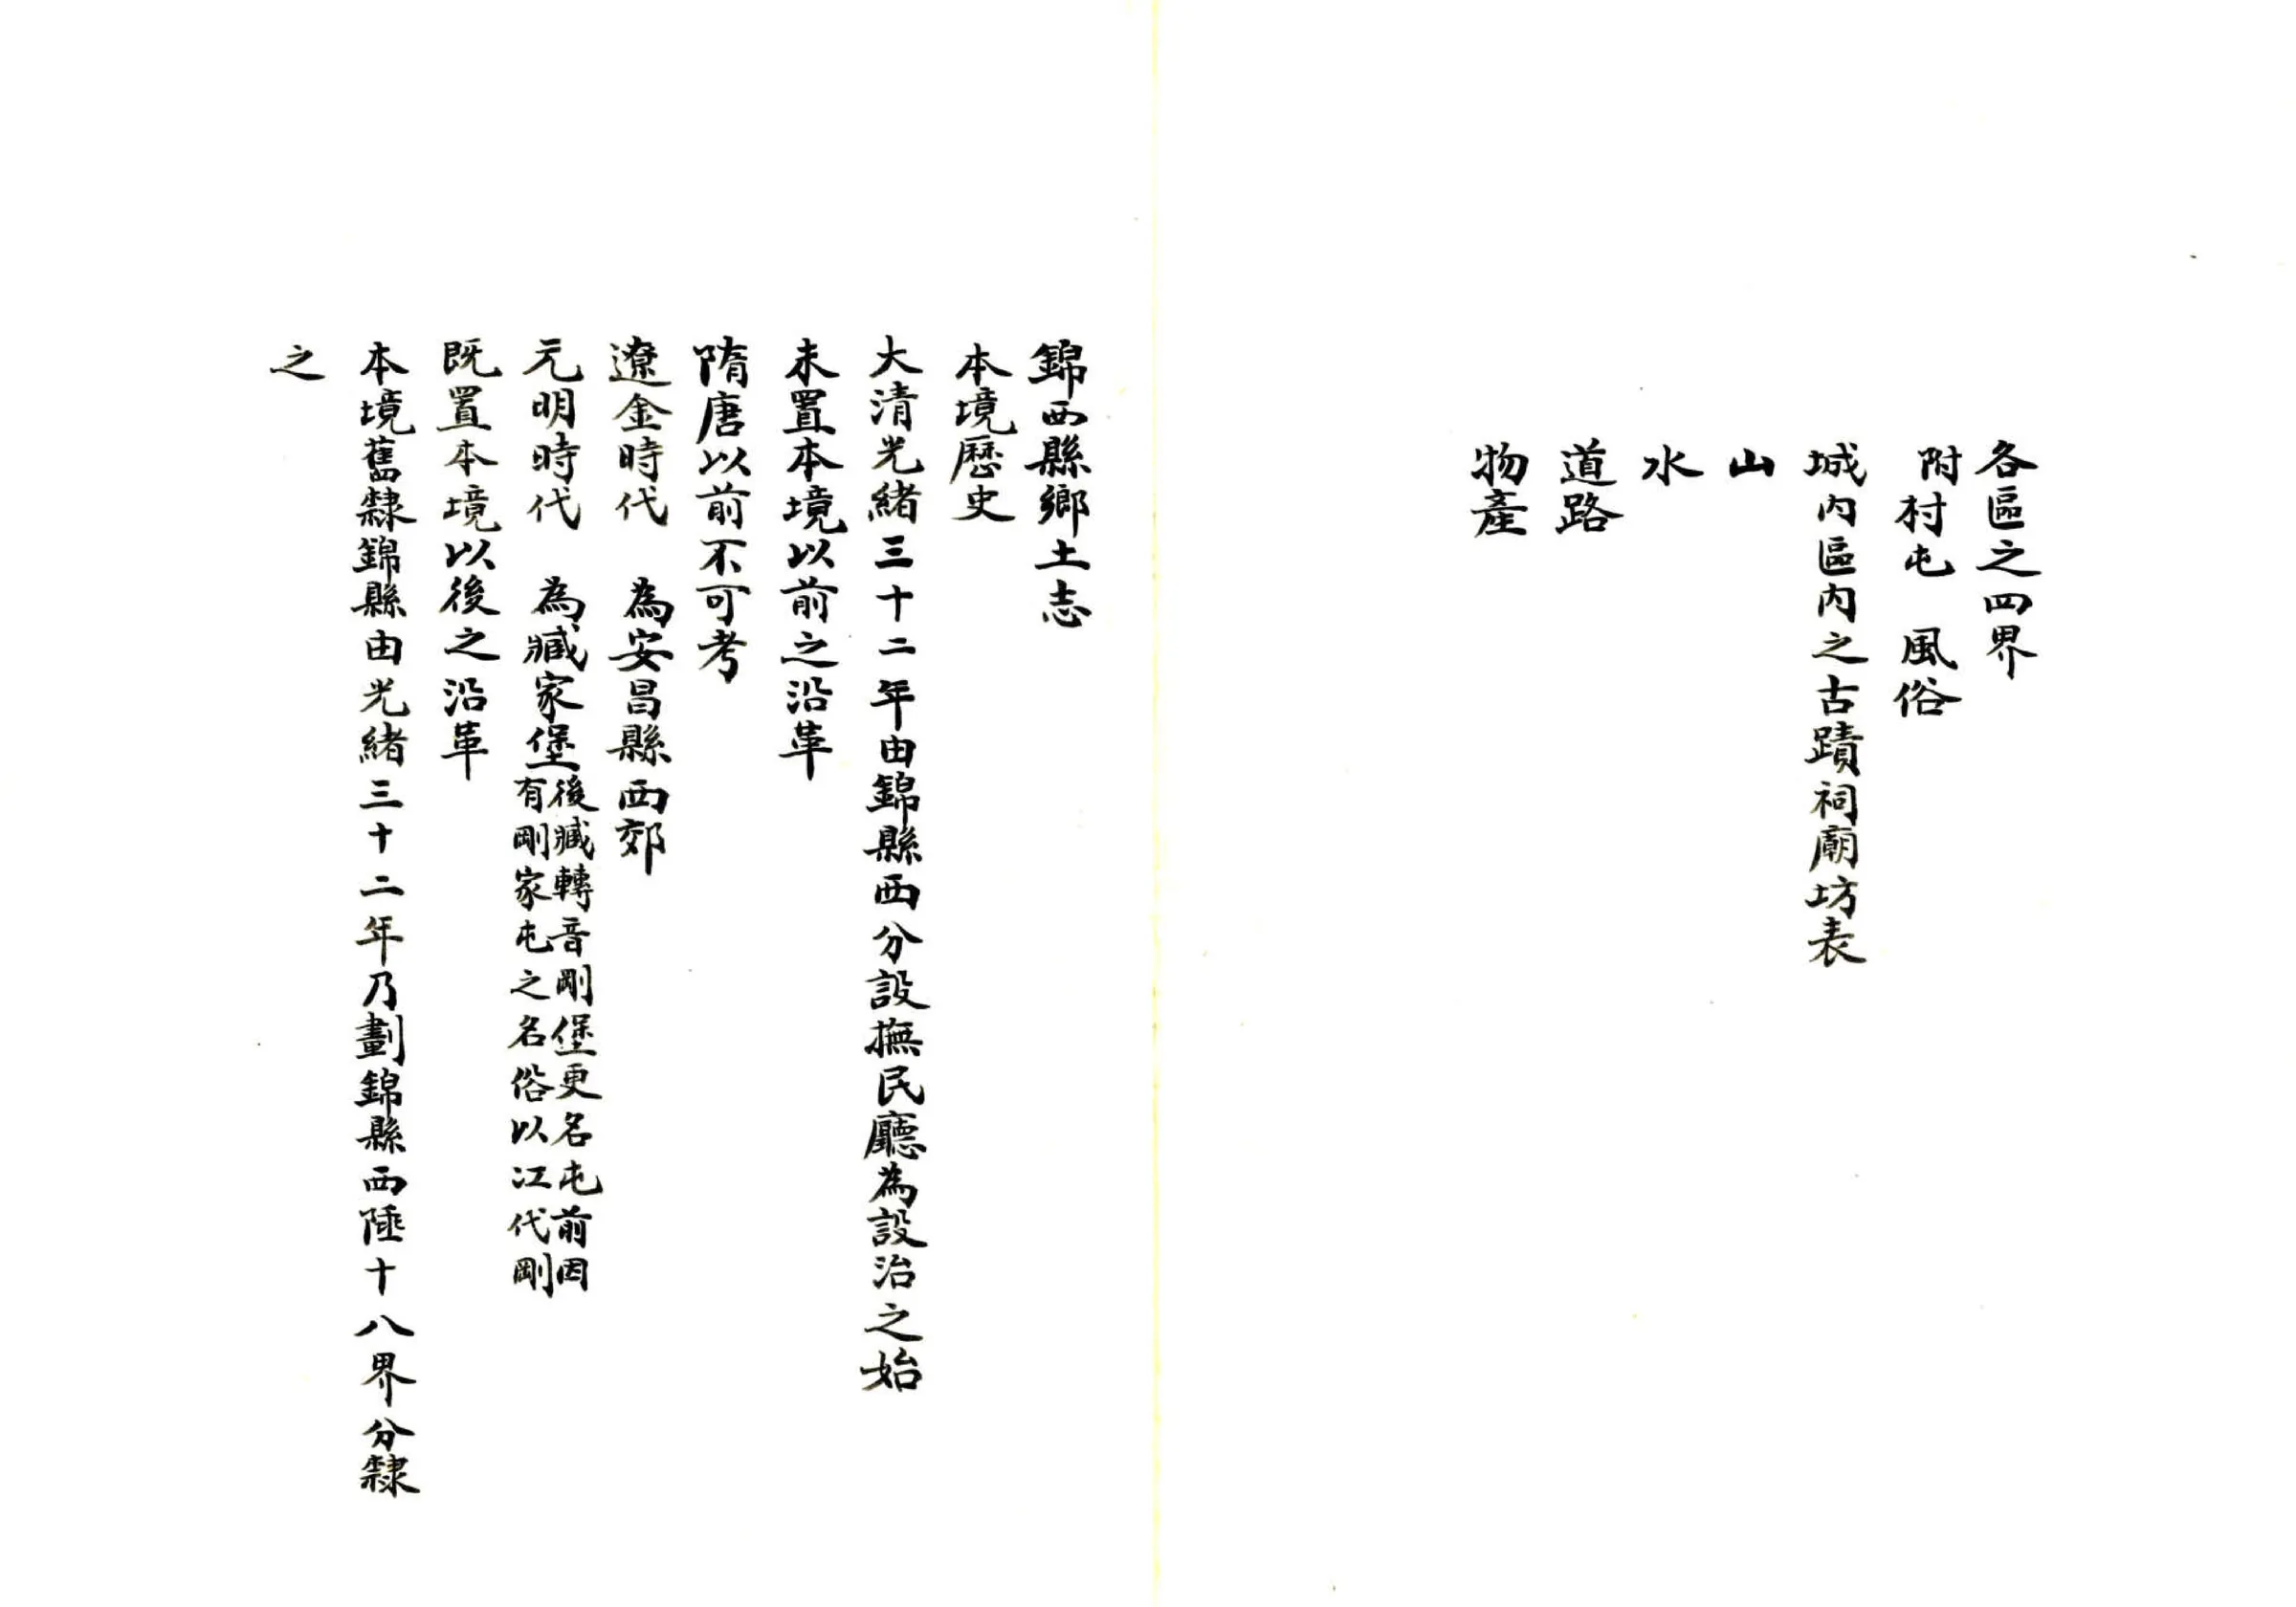 各區之四界
附村屯　風俗
城內區內之古蹟祠廟坊表
山
水
道路
物產
錦西縣鄉土志
本境歷史
大清光緒三十二年由錦縣西分設撫民廳為設治之始
未置本境以前之沿革
隋唐以前不可考
遼金時代　為安昌縣西郊
元明時代　為臧家堡
後臧轉音剛堡更名屯前因
有剛家屯之名俗以江代剛
既置本境以後之沿革
本境舊隸錦縣由光緒三十二年乃劃錦縣西陲十八界分隸
之